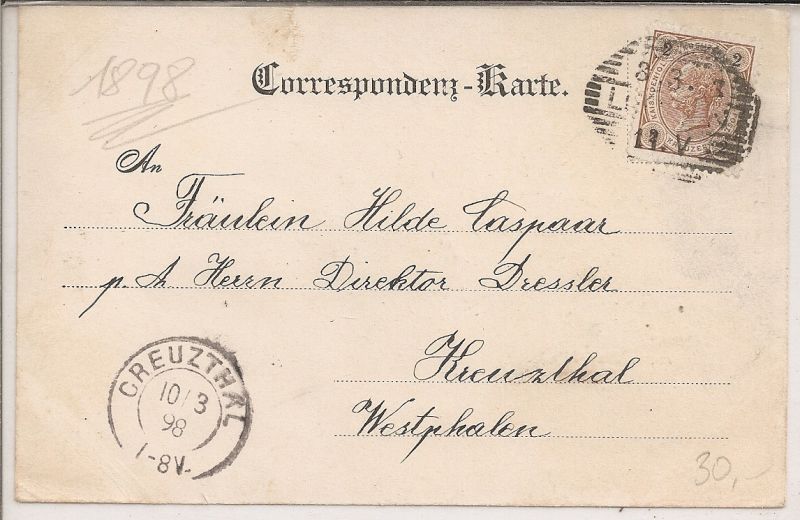 1898
Correspondenz-Karte.
2 2
8. 3.
11. V
An
Fräulein Hilde Caspaar
p. A Herrn Direktor Dressler
Kreuzthal
Westphalen
CREUZTHAL
10/3
98
7-8V.
30,-